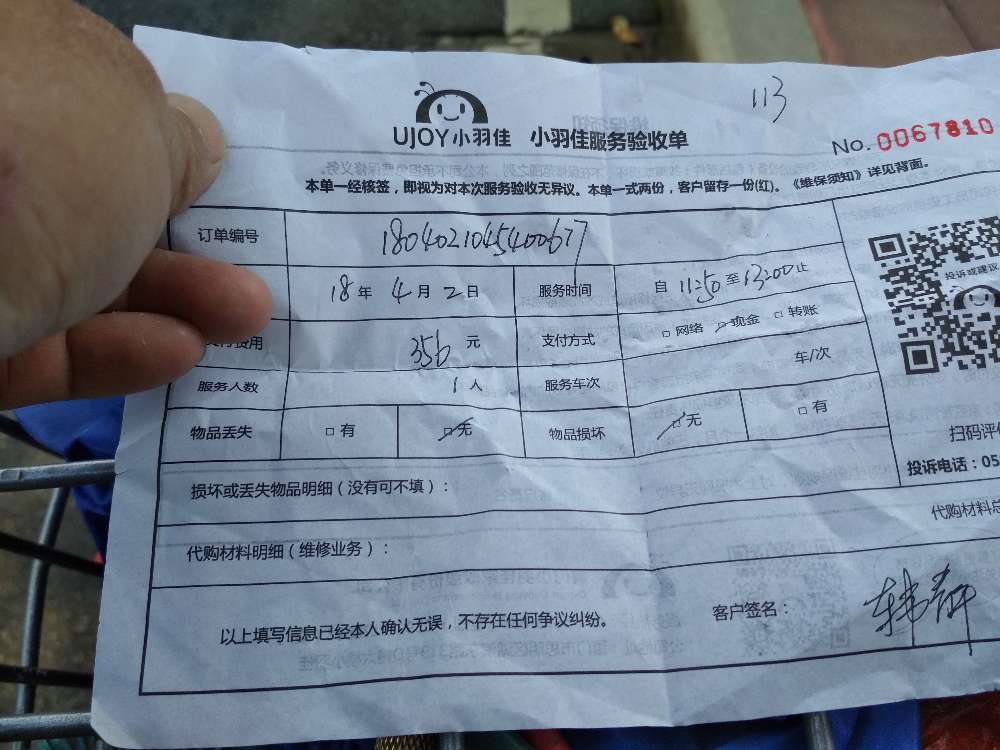 113
UJOY小羽佳 小羽佳服务验收单
No. 0067810
本单一经核签，即视为对本次服务验收无异议。本单一式两份，客户留存一份(红)。《维保须知》详见背面。
订单编号 1804021045400677
18年 4月 2日 服务时间 自 11:50 至 13:00 止
支付费用 356 元 支付方式 □ 网络 □ 现金 □ 转账
服务人数 1 人 服务车次 车/次
物品丢失 □ 有 □ 无 物品损坏 □ 无 □ 有
投诉或建议
扫码评
投诉电话：05
损坏或丢失物品明细（没有可不填）：
代购材料明细（维修业务）： 代购材料总
以上填写信息已经本人确认无误，不存在任何争议纠纷。 客户签名：